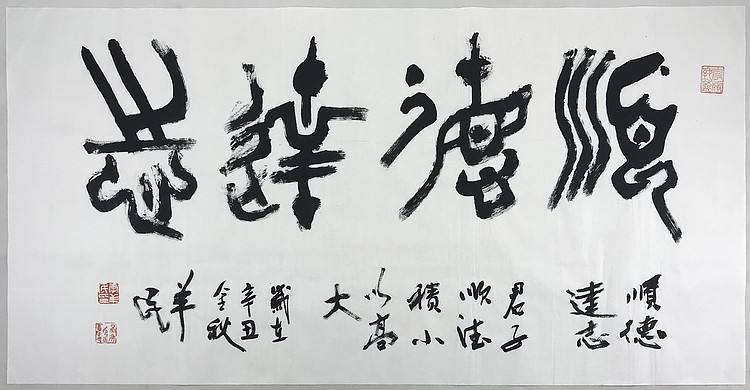 順德達志
順德
達志
君子
順德
積小
以高
大
歲在
辛丑
金秋
羊
民